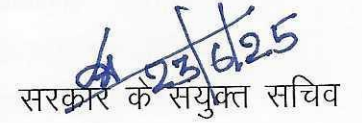 23/6/25
सरकार के संयुक्त सचिव